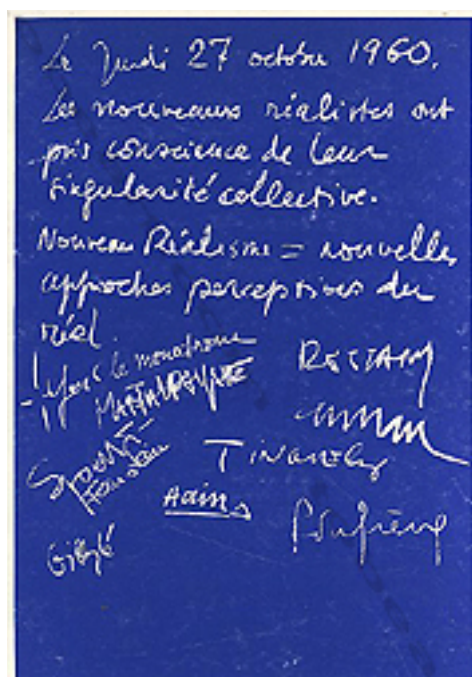 Le Jeudi 27 octobre 1960.
Les nouveaux réalistes ont
pris conscience de leur
singularité collective.
Nouveau Réalisme = nouvelles
approches perceptives du
réel.
Yves le monochrome
Martial Raysse
RESTANY
Spoerri
Tinguely
Hains
F. Dufrêne